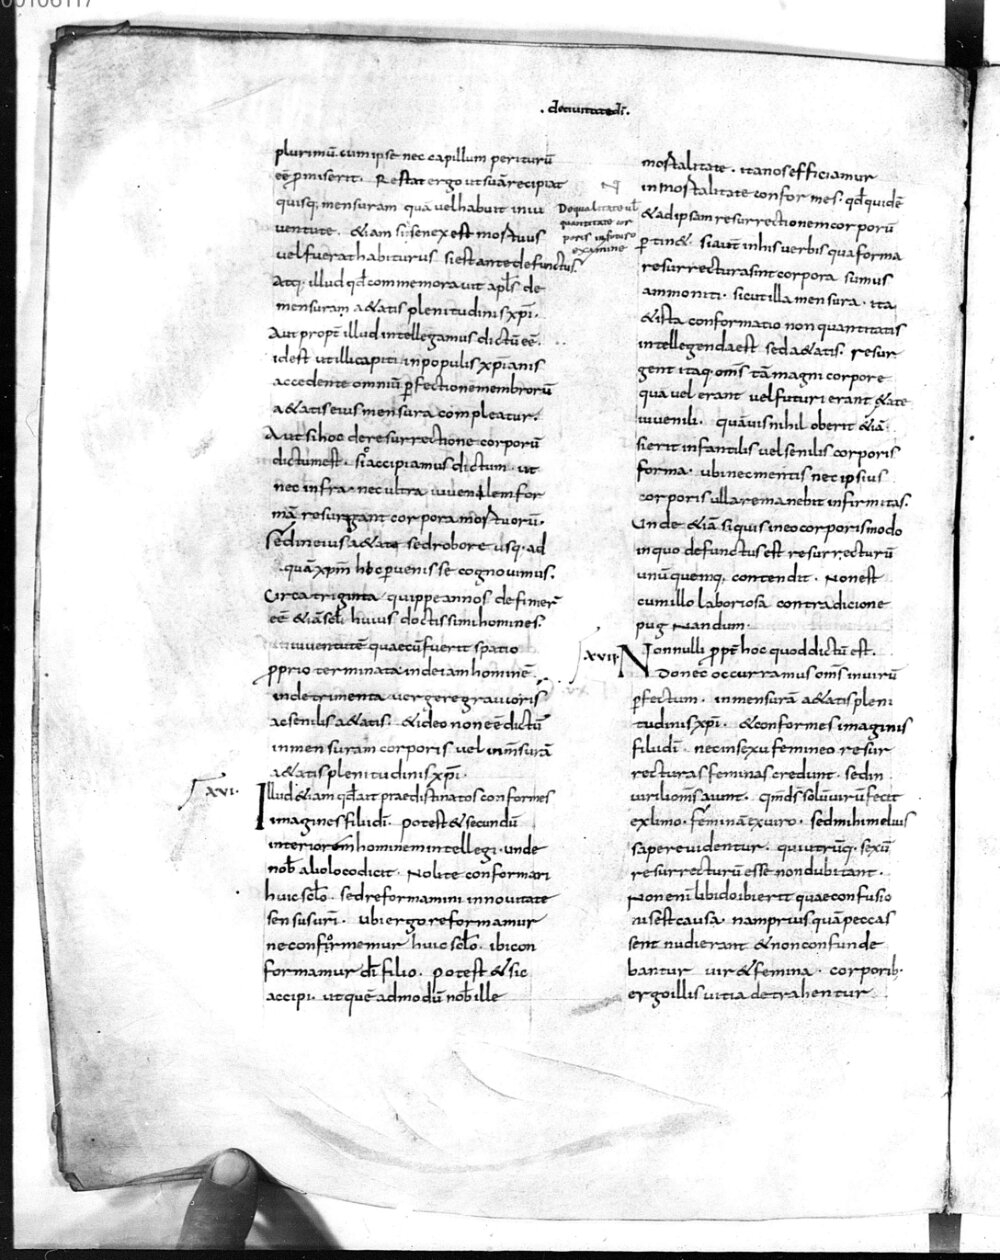 .deciuitatedī.
plurimū. cum ipse nec capillum periturū
eē ꝓmiserit. Restat ergo ut suā recipiat
quisq; mensuram quā uel habuit in iuu
uentute. &iam si senex est mortuus
uel fuerat habiturus si est ante defunctus.
Atq; illud qđ commemorauit apłs de
mensuram a&atis plenitudinis xp̄i.
Aut propt̄ illud intellegamus dictū eē.
idest ut illi capiti in populis xp̄ianis
accedente omniū ꝑfectione membrorū
a&atis eius mensura compleatur.
Aut si hoc de resurrectione corporū
dictum est. sic accipiamus dictum. ut
nec infra nec ultra iuuenilem for
mā resurgant corpora mortuorū.
sed in eius a&ate sed robore usq; ad
quā xp̄m hic ꝑuenisse cognouimus.
Circa triginta quippe annos definier̄
eē &iā scłi huius doctissimi homines.
iuuentutē quae cū fuerit spatio
ꝓprio terminata inde iam hominē
in detrimenta uergere grauioris
ac senilis a&atis. &ideo non eē dictū
in mensuram corporis uel in m̄surā
a&atis plenitudinis xp̄i.
xvi.
Illud &iam qđ ait praedistinatos conformes
imagines filii dī. potest & secundū
interiorem hominem intellegi. unde
nob̄ alio loco dicit. Nolite conformari
huic scło. sed reformamini in nouitate
sensus urī. ubi ergo reformamur
ne conformemur huic scło. ibi con
formamur dī filio. potest & sic
accipi. ut quē admodū nob̄ ille
De qualitate uł
quantitate cor
poris in futuro
examine
mortalitate. ita nos efficiamur
in mortalitate conformes. qđ quidē
&ad ipsam resurrectionem corporū
ꝑtin&. si aut in his uerbis qua forma
resurrectura sint corpora sumus
ammoniti. sicut illa mensura. ita
&ista conformatio non quantitatis
intellegenda est sed a&atis. resur
gent itaq; om̄s tā magni corpore
quā uel erant uel futuri erant &ate
iuuenili. quāuis nihil oberit &iā
si erit infantilis uel senilis corporis
forma. ubi nec mentis nec ipsius
corporis ulla remanebit infirmitas.
Unde &iā si quis in eo corporis modo
in quo defunctus est resurrecturū
unū quemq; contendit. Non est
cum illo laboriosa contradicione
pugnandum.
xvii.
Nonnulli ꝓpt̄ hoc quod dictū est.
Donec occurramus om̄s in uirū
ꝑfectum. in mensurā a&atis pleni
tudinis xp̄i. &conformes imaginis
filii dī. nec in sexu femineo resur
recturas feminas credunt. sed in
uirili om̄s aiunt. qm̄ ds̄ solū uirū fecit
ex limo. feminā ex uiro. sed mihi melius
sapere uidentur. qui utrūq; sexū
resurrecturū esse non dubitant.
Non enī libido ibi erit quae confusio
nis est causa. nam prius quā peccas
sent nudi erant &non confunde
bantur uir & femina. corporib.
ergo illis uitia detrahentur